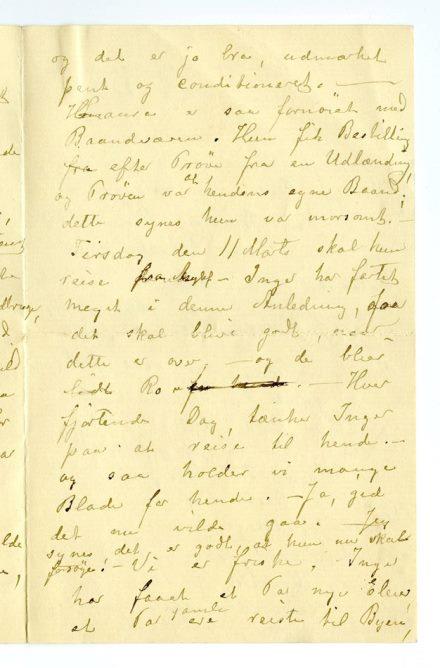 og det er jo bra, udmærket
pent og conditioneret. —
Hansara er saa fornöiet med
Baandvæven. Hun fik Bestilling
fra efter Pröve fra en Udlænding,
og Pröven var at hendens egne Baand,
dette synes hun var morsomt. —
Tirsdag den 11 Marts skal hun
reise — Inga har fartet
meget i denne Anledning, saa
det skal blive godt, naar
dette er over, — og de bliver
Ro — Hver
fjortende Dag, tænker Inger
paa at reise til hende. —
og saa holder vi mange
Blade for hende. — Ja, gid
det nu vilde gaa. — Jeg
synes det er godt, at hun nu skal
forsöge! — Vi er friske. Inga
har faaet et Par nye Elever
et Par gamle ere reiste til Byen,